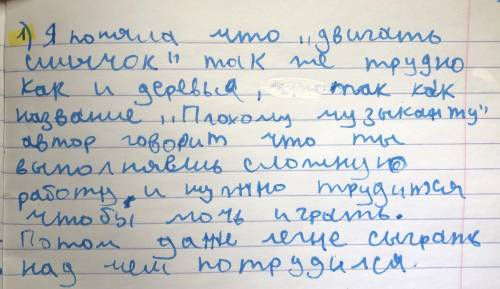 1) Я поняла что „двигать
смычок" так же трудно
как и деревья, так как
название „Плохому музыканту"
автор говорит что ты
выполнявшь сложную
работу, и нужно трудится
чтобы мочь играть.
Потом даже легче сыграть
над чем потрудился.